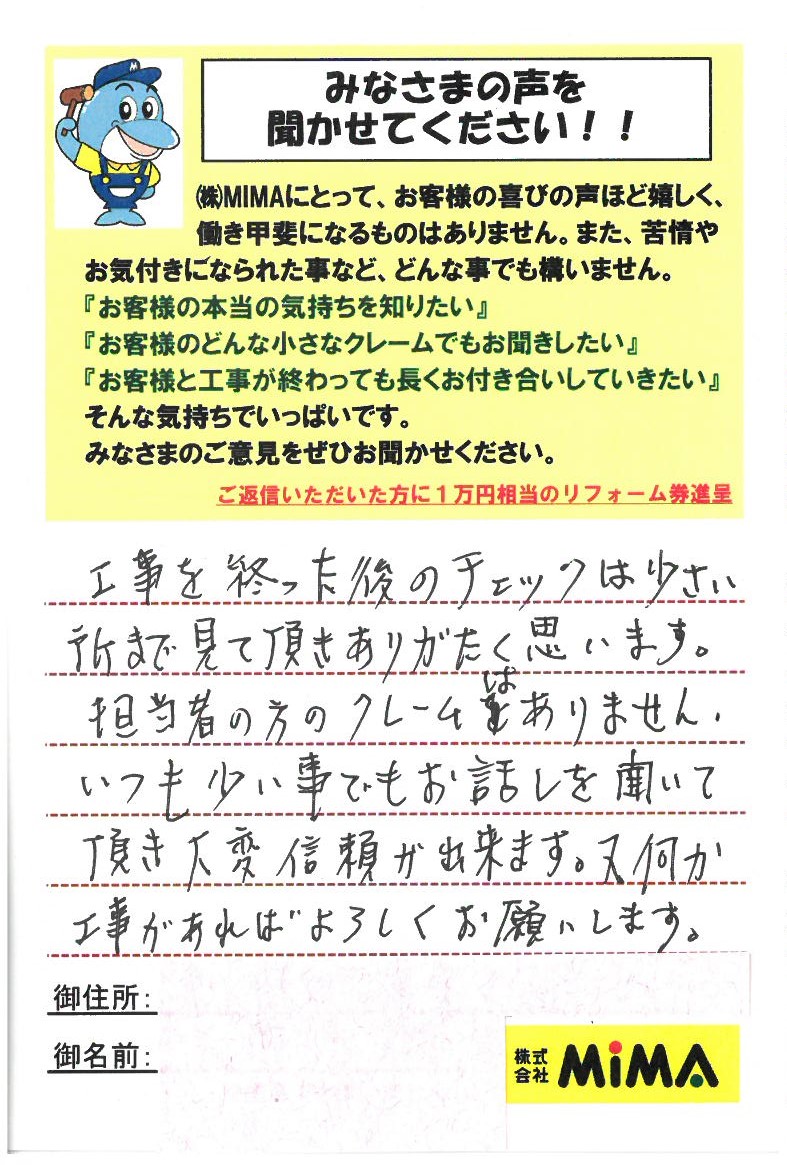 みなさまの声を
聞かせてください！！
㈱MIMAにとって、お客様の喜びの声ほど嬉しく、
働き甲斐になるものはありません。また、苦情や
お気付きになられた事など、どんな事でも構いません。
『お客様の本当の気持ちを知りたい』
『お客様のどんな小さなクレームでもお聞きしたい』
『お客様と工事が終わっても長くお付き合いしていきたい』
そんな気持ちでいっぱいです。
みなさまのご意見をぜひお聞かせください。
ご返信いただいた方に１万円相当のリフォーム券進呈
工事を終った後のチェックは少さい
所まで見て頂きありがたく思います。
担当者の方のクレームはありません.
いつも少い事でもお話しを聞いて
頂き大変信頼が出来ます。又何か
工事があればよろしくお願いします。
御住所：
御名前：
株式
会社 MiMA